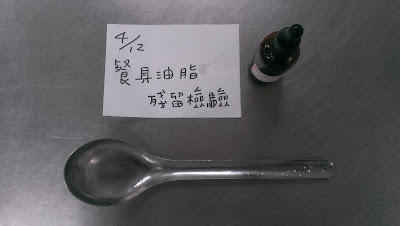 4/12
餐具油脂
殘留檢驗